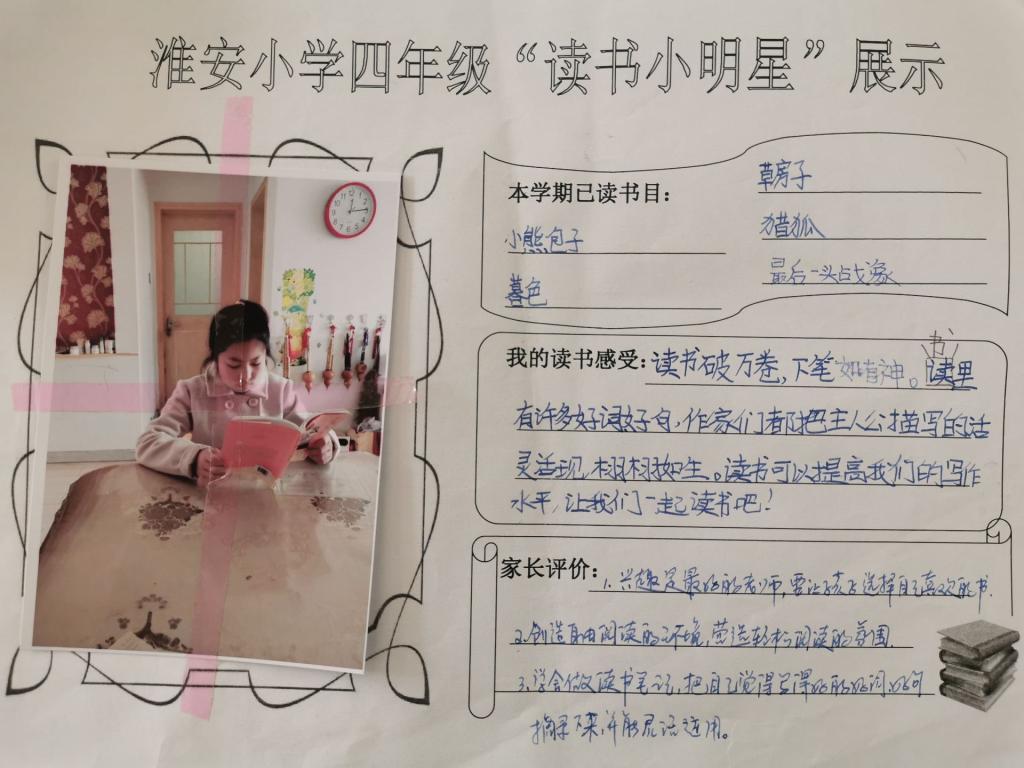 淮安小学四年级“读书小明星”展示
本学期已读书目:
草房子
小熊包子
猎狐
暮色
最后一头战象
我的读书感受:读书破万卷,下笔如有神。书里
有许多好词好句,作家们都把主人公描写的活
灵活现,栩栩如生。读书可以提高我们的写作
水平,让我们一起读书吧!
家长评价:
1.兴趣是最好的老师,要让孩子选择自己喜欢的书.
2.创造自由阅读的环境,营造轻松阅读的氛围.
3.学会做读书笔记,把自己觉得写得好的好词、好句
摘录下来,并能灵活运用。